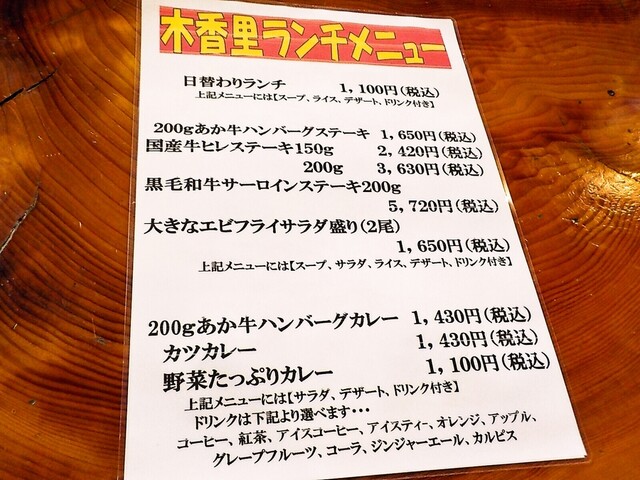 木香里ランチメニュー
日替わりランチ 1,100円(税込)
上記メニューには【スープ、ライス、デザート、ドリンク付き】
200gあか牛ハンバーグステーキ 1,650円(税込)
国産牛ヒレステーキ150g 2,420円(税込)
200g 3,630円(税込)
黒毛和牛サーロインステーキ200g
5,720円(税込)
大きなエビフライサラダ盛り(2尾)
1,650円(税込)
上記メニューには【スープ、サラダ、ライス、デザート、ドリンク付き】
200gあか牛ハンバーグカレー 1,430円(税込)
カツカレー 1,430円(税込)
野菜たっぷりカレー 1,100円(税込)
上記メニューには【サラダ、デザート、ドリンク付き】
ドリンクは下記より選べます・・・
コーヒー、紅茶、アイスコーヒー、アイスティー、オレンジ、アップル、
グレープフルーツ、コーラ、ジンジャーエール、カルピス